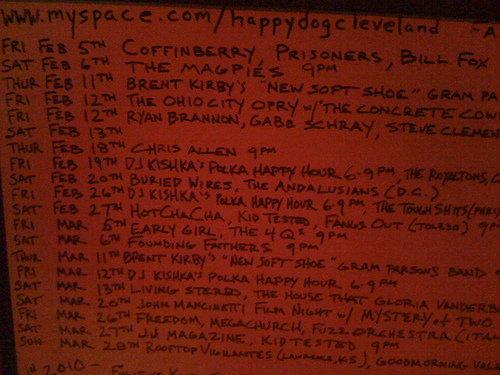 www.myspace.com/happydogcleveland - A
FRI FEB 5TH COFFINBERRY, PRISONERS, BILL FOX
SAT FEB 6TH THE MAGPIÉS 9PM
THUR FEB 11TH BRENT KIRBY'S "NEW SOFT SHOE" GRAM PA
FRI FEB 12TH THE OHIO CITY OPRY w/ THE CONCRETE COW
FRI FEB 12TH RYAN BRANNON, GABE SCHRAY, STEVE CLEMEN
SAT FEB 13TH
THUR FEB 18TH CHRIS ALLEN 9PM
FRI FEB 19TH DJ KISHKA'S POLKA HAPPY HOUR 6-9PM, THE ROYALTONS, C
SAT FEB 20TH BURIED WIRES, THE ANDALUSIANS (D.C.)
FRI FEB 26TH DJ KISHKA'S POLKA HAPPY HOUR 6-9PM, THE TOUGH SHITS
SAT FEB 27TH HOTCHACHA, KID TESTED, FANGS OUT (TOLEDO) 9PM
FRI MAR 5TH EARLY GIRL, THE 4 QS 9PM
SAT MAR 6TH FOUNDING FATHERS 9PM
THUR MAR 11TH BRENT KIRBY'S "NEW SOFT SHOE" GRAM PARSONS BAND
FRI MAR 12TH DJ KISHKA'S POLKA HAPPY HOUR 6-9PM
SAT MAR 13TH LIVING STEREO, THE HOUSE THAT GLORIA VANDERB
SAT MAR 20TH JOHN MANCINETTI FILM NIGHT w/ MYSTERY OF TWO
FRI MAR 26TH FREEDOM, MEGACHURCH, FUZZ ORCHESTRA (ITAL
SAT MAR 27TH JJ MAGAZINE, KID TESTED 9PM
SUN MAR 28TH ROOFTOP VIGILANTES (LAWRENCE, KS), GOODMORNING VAL
2010 -